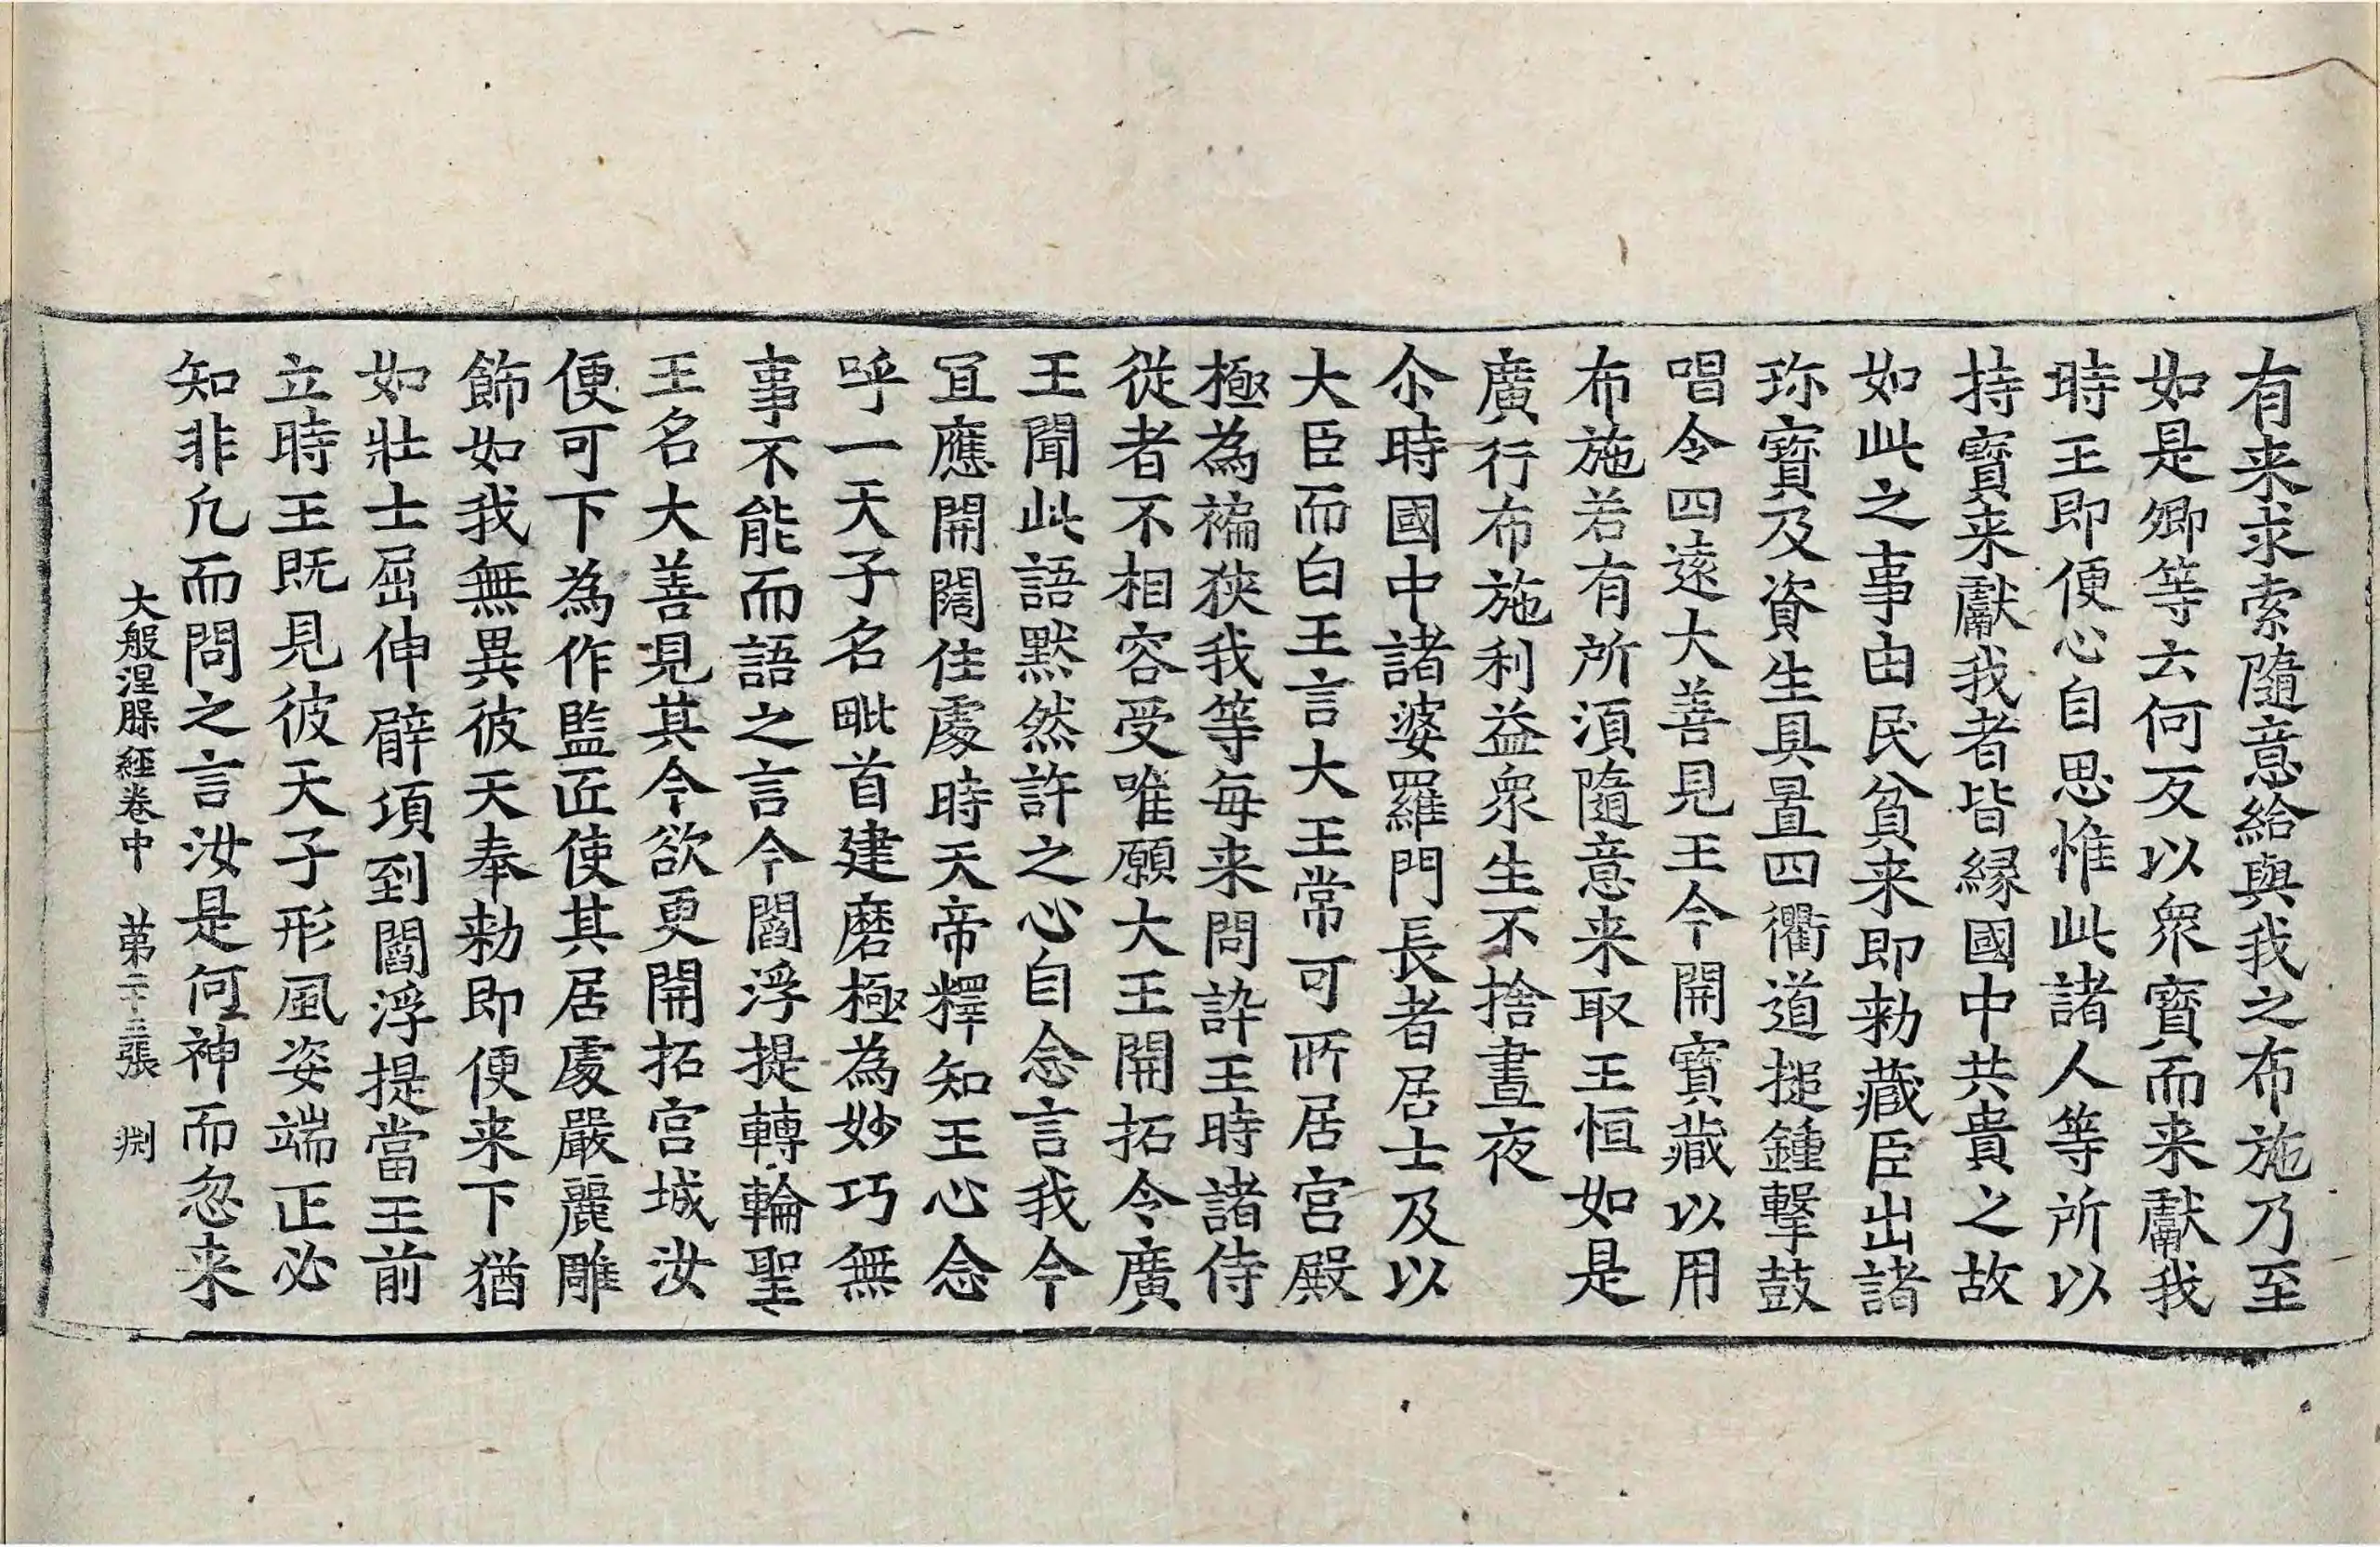 有来求索隨意給與我之布施乃至
如是卿等云何反以衆寳而来獻我
時王即便心自思惟此諸人等所以
持寳来獻我者皆縁國中共貴之故
如此之事由民貧来即勑藏臣出諸
珎寳及資生具置四衢道搥鍾擊鼓
唱令四遠大善見王今開寳藏以用
布施若有所湏隨意来取王恒如是
廣行布施利益衆生不捨晝夜
尒時國中諸婆羅門長者居士及以
大臣而白王言大王常可所居宫殿
極為褊狹我等每来問訊王時諸侍
從者不相容受唯願大王開拓令廣
王聞此語黙然許之心自念言我今
冝應開闊住處時天帝釋知王心念
呼一天子名毗首建磨極為妙巧無
事不能而語之言今閻浮提轉輪聖
王名大善見其今欲更開拓宫城汝
便可下為作監匠使其居處嚴麗雕
飾如我無異彼天奉勑即便来下猶
如壯士屈伸臂項到閻浮提當王前
立時王既見彼天子形風姿端正必
知非凢而問之言汝是何神而忽来
大般涅槃經卷中 苐二十三張